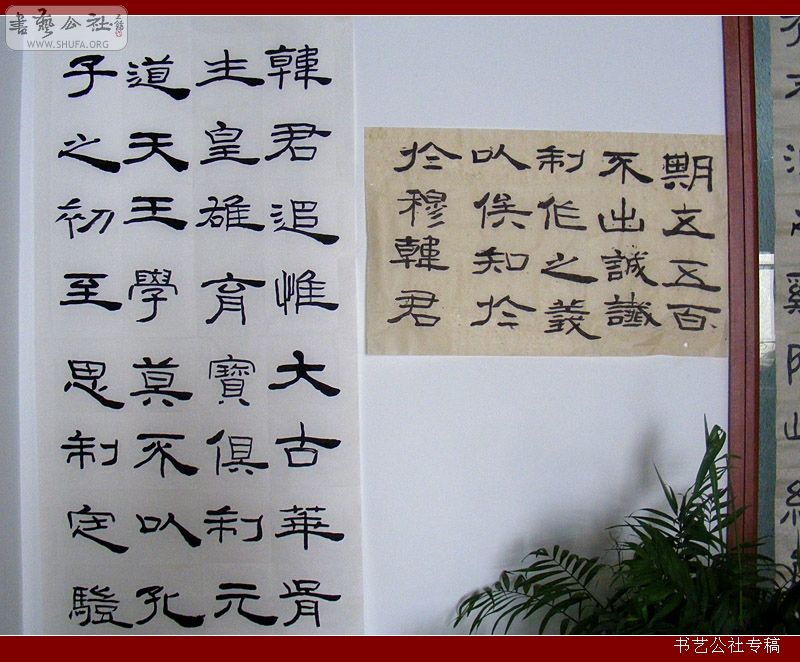 書藝公社
WWW.SHUFA.ORG
韓君追惟大古華胥
生皇雄育寶俱制元
道天王學莫不以孔
子之初至思制定驗
期五五百
不出誠讖
制作之義
以俟知於
於穆韓君
书艺公社专稿